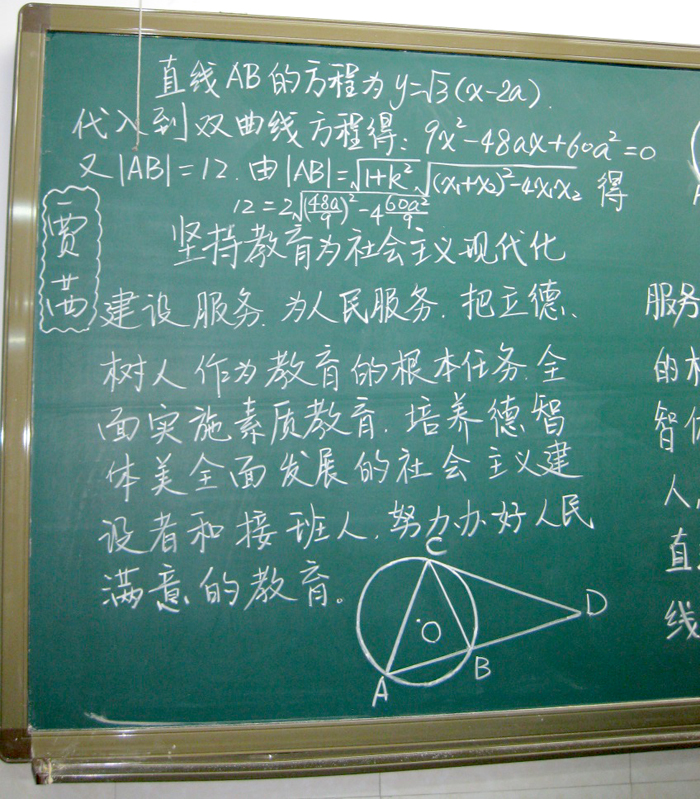 直线AB的方程为y=√3(x-2a).
代入到双曲线方程得:9x²-48ax+60a²=0
又|AB|=12.由|AB|=√1+k² √(x₁+x₂)²-4x₁x₂ 得
12=2√(48a/9)²-4 60a²/9
贾茜
坚持教育为社会主义现代化
建设服务.为人民服务.把立德、
树人作为教育的根本任务.全
面实施素质教育.培养德智
体美全面发展的社会主义建
设者和接班人.努力办好人民
满意的教育。
C
D
O
B
A
服务
的
智
人
直
线